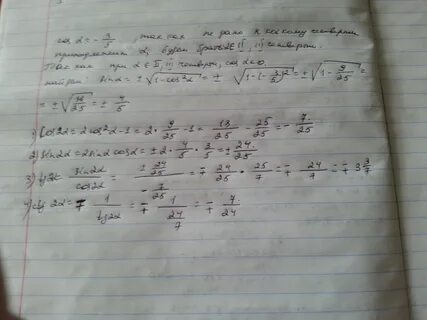 cos α = - 3/5, так как не дано к какому четверти
принадлежит α, будем брать α ∈ II, III четверти.
Так как при α ∈ II, III четверти, cos α < 0.
найдём: sin α = ± √(1-cos²α) = ± √(1-(-3/5)²) = ± √(1 - 9/25) =
= ± √(16/25) = ± 4/5
1) cos 2α = 2cos²α - 1 = 2 · 9/25 - 1 = 18/25 - 25/25 = - 7/25
2) sin 2α = 2 sin α cos α = ± 2 · 4/5 · 3/5 = ± 24/25
3) tg 2α = sin 2α / cos 2α = (± 24/25) / (- 7/25) = ∓ 24/25 · 25/7 = ∓ 24/7 = ∓ 3 3/7
4) ctg 2α = 1 / tg 2α = ∓ 1 / (24/7) = ∓ 7/24